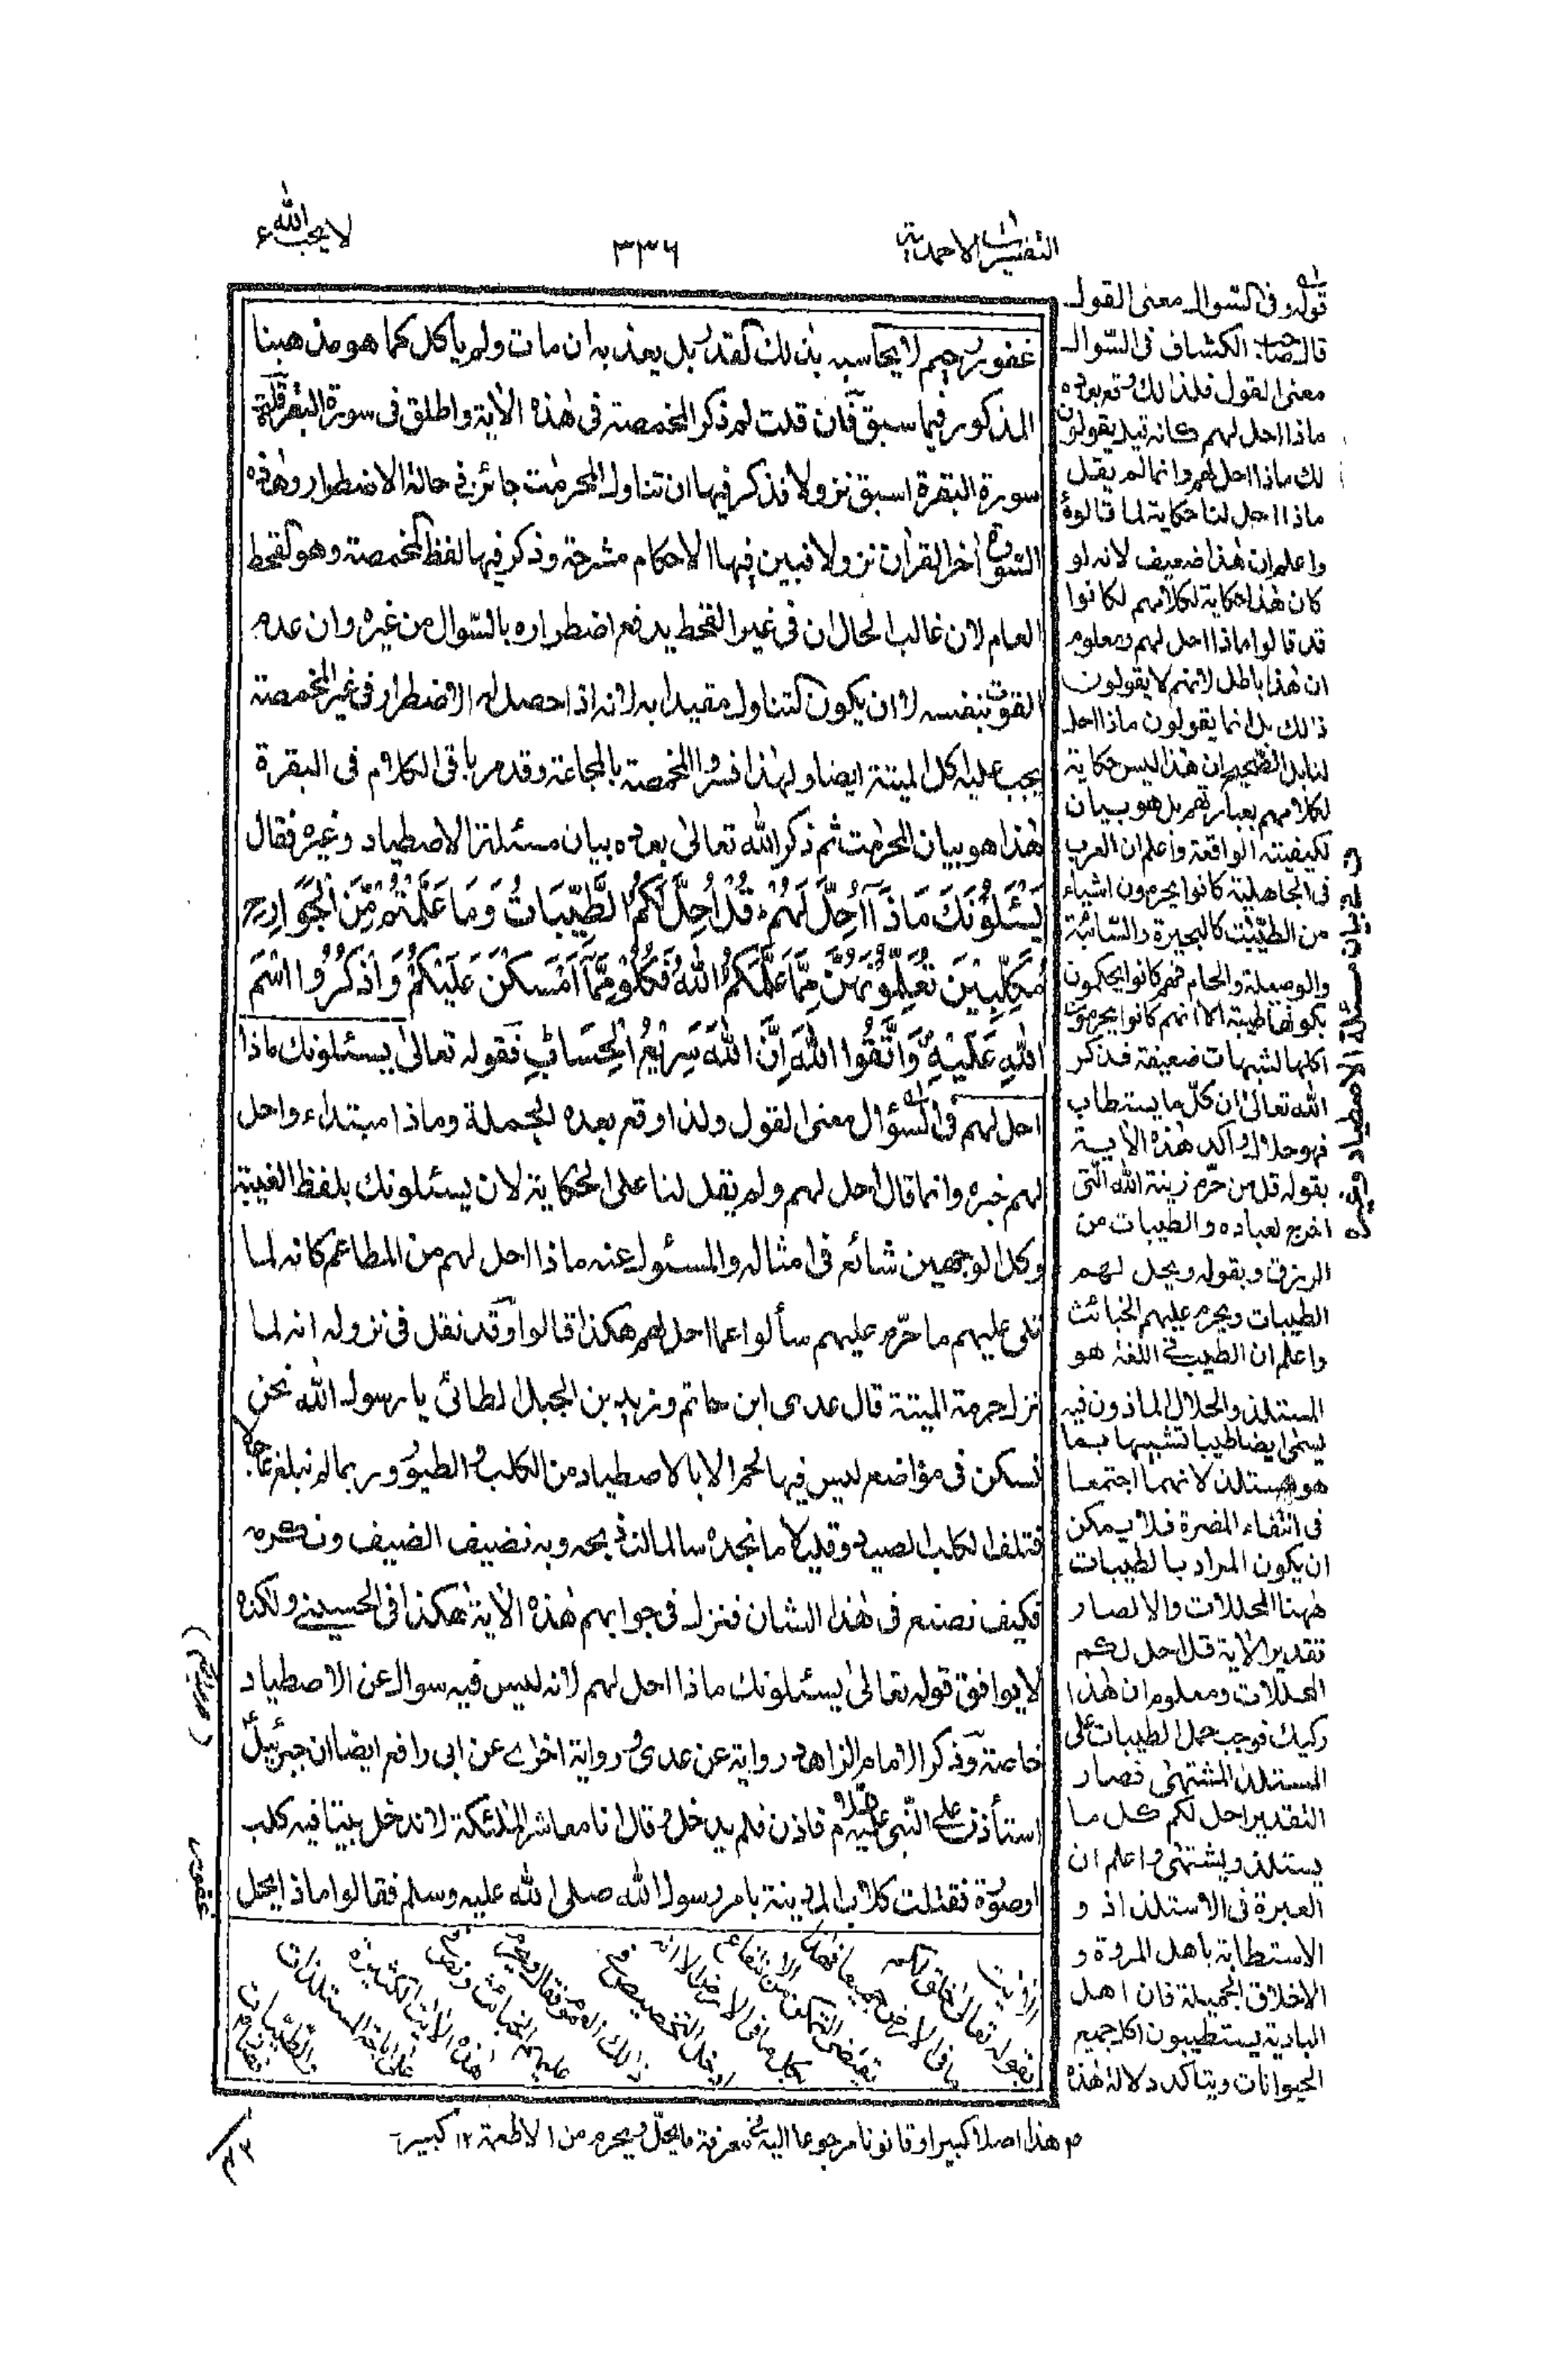 التفسيرات الاحمدية
٣٣٦
لا يحب الله
غفور رحيم لا يحاسبه بذلك القدر بل يعذب به ان مات ولم يأكل كما هو مذهبنا
المذكور فيما سبق فان قلت لم ذكر المخمصة فى هذه الأية واطلق فى سورة البقرة قلت
سورة البقرة اسبق نزولا فذكر فيها ان تناول المحرمٰت جائز فى حالة الاضطرار وهذه
السورة أخر القرأن نزولا فبين فيها الاحكام مشرحة وذكر فيها لفظ المخمصة وهو القحط
العام لان غالب الحال ان فى غير القحط يدفع اضطراره بالسّوال من غيره وان عدم
القوت بنفسه لا ان يكون التناول مقيدا به لانه اذا حصل له الاضطرار فى غير المخمصة
يجب عليه اكل الميتة ايضا ولهذا فسروا المخمصة بالمجاعة وقد مر باقى الكلام فى البقرة
هٰذا هو بيان المحرمٰت ثم ذكر الله تعالىٰ بعده بيان مسئلة الاصطياد وغيره فقال
يَسْئَلُوْنَكَ مَاذَآ اُحِلَّ لَهُمْ قُلْ اُحِلَّ لَكُمُ الطَّيِّبَاتُ وَمَا عَلَّمْتُمْ مِّنَ الْجَوَارِحِ
مُكَلِّبِيْنَ تُعَلِّمُوْنَهُنَّ مِمَّا عَلَّمَكُمُ اللهُ فَكُلُوْا مِمَّآ اَمْسَكْنَ عَلَيْكُمْ وَاذْكُرُوا اسْمَ
اللهِ عَلَيْهِ وَاتَّقُوا اللهَ اِنَّ اللهَ سَرِيْعُ الْحِسَابِ فقوله تعالىٰ يسئلونك ماذا
احل لهم فى السؤال معنى القول ولذا وقع بعده الجملة وماذا مبتداء واحل
لهم خبره وانما قال احل لهم ولم يقل لنا على الحكاية لان يسئلونك بلفظ الغيبة
وكلا الوجهين شائع فى امثاله والمسئول عنه ماذا احل لهم من المطاعم كانه لما
تلى عليهم ما حرّم عليهم سألوا عما احل لهم هكذا قالوا وقد نقل فى نزوله انه لما
نزل حرمة الميتة قال عدى ابن حاتم وزيد بن الجبل الطائى يا رسول الله نحن
نسكن فى مواضع ليس فيها لحم الا بالاصطياد من الكلب والطيور وربما لم نبلغ
فتلف الكلب الصيد وقليلا ما نجده سالما لنذبحه وبه نضيف الضيف ونكرمه
فكيف نصنع فى هٰذا الشان فنزل فى جوابهم هٰذه الأية هٰكذا فى الحسينى ولكنه
لا يوافق قوله تعالىٰ يسئلونك ماذا احل لهم لانه ليس فيه سوال عن الاصطياد
خاصة وذكر الامام الزاهد رواية عن عدى ورواية اخرٰى عن ابى رافع ايضا ان جبرئيل
استأذن على النّبى عليه السلام فاذن فلم يدخل وقال انا معاشر الملٰئكة لا ندخل بيتا فيه كلب
او صورة فقتلت كلاب المدينة بامر رسول الله صلى الله عليه وسلم فقالوا ماذا يحل
قوله وفى السّوال معنى القول
قال صاحب الكشاف فى السّوال
معنى القول فلذالك وقع بعده
ماذا احل لهم كانه قيل يقولون
لك ماذا احل لهم وانما لم يقل
ماذا احل لنا حكاية لما قالوه
واعلم ان هٰذا ضعيف لانه لو
كان هٰذا حكاية لكلامهم لكانوا
قد قالوا ماذا احل لهم ومعلوم
ان هٰذا باطل لانهم لا يقولون
ذٰلك بل انما يقولون ماذا احل
لنا بل الصّحيح ان هٰذا ليس حكاية
لكلامهم بعبارتهم بل هو بيان
لكيفيته الواقعة واعلم ان العرب
فى الجاهلية كانوا يحرمون اشياء
من الطيّبٰت كالبحيرة والسّائبة
والوصيلة والحام فهم كانوا يحكمون
بكونها طيبة الا انهم كانوا يحرمون
اكلها لشبهات ضعيفة فذكر
الله تعالىٰ ان كلّ ما يستطاب
فهو حلال واكد هٰذه الأية
بقوله قل من حرّم زينة الله التى
اخرج لعباده والطيبات من
الرزق وبقوله ويحل لهم
الطيبات ويحرم عليهم الخبائث
واعلم ان الطيب فى اللغة هو
المستلذ والحلال الماذون فيه
يسمٰى ايضا طيبا تشبيها بما
هو مستلذ لانهما اجتمعا
فى انتفاء المضرة فلا يمكن
ان يكون المراد بالطيبات
هٰهنا المحللات والا لصار
تقدير الأية قل احل لكم
المحللات ومعلوم ان هٰذا
ركيك فوجب حمل الطيبات على
المستلذ المشتهىٰ فصار
التقدير احل لكم كل ما
يستلذ ويشتهىٰ واعلم ان
العبرة فى الاستلذاذ و
الاستطابة باهل المروة و
الاخلاق الجميلة فان اهل
البادية يستطيبون اكل جميع
الحيوانات ويتأكد دلالة هٰذه
بيان مسئلة الاصطياد وغيره
هذا اصلا كبيرا وقانونا مرجوعا اليه فى معرفة ما يحلّ ويحرم من الاطعمة ١٢ كبير